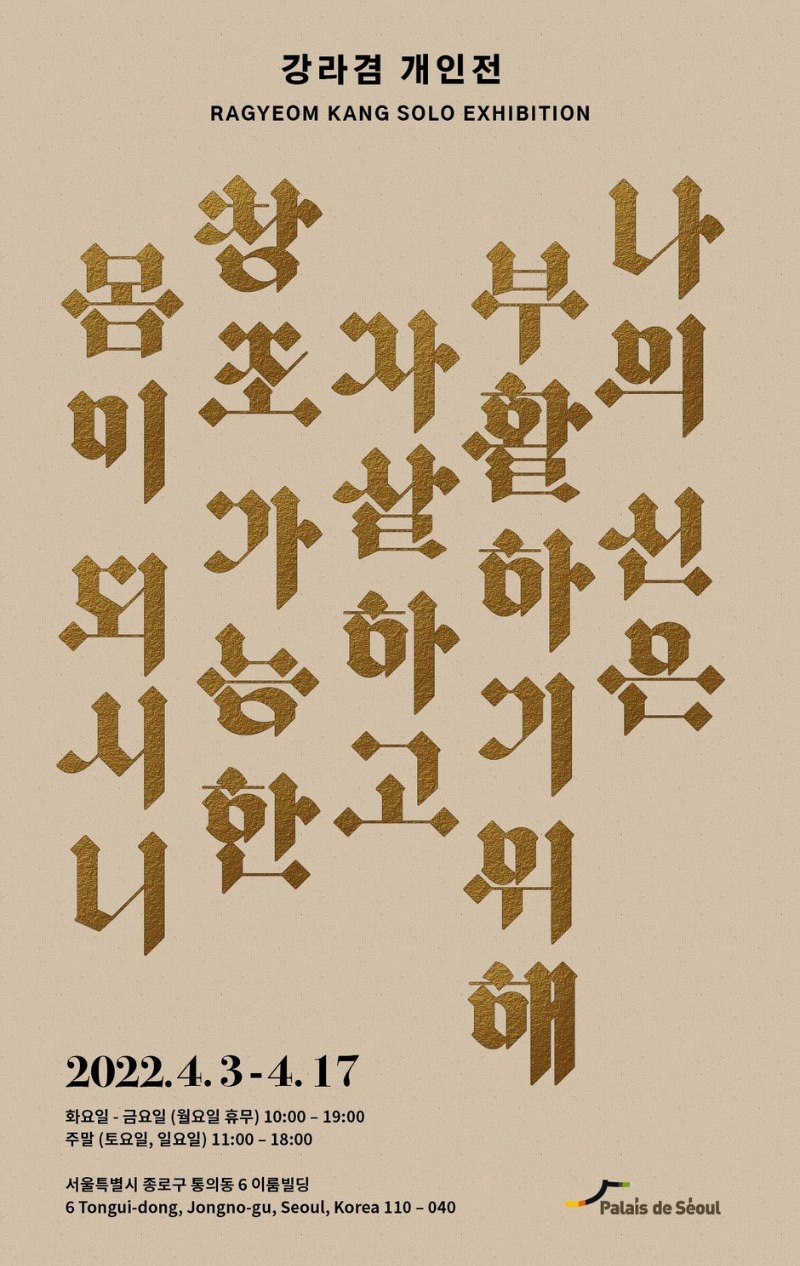 강라겸 개인전
RAGYEOM KANG SOLO EXHIBITION
나의 신은
부활하기위해
자살하고
창조 가능한
몸이 되시니
2022.4.3-4.17
화요일 - 금요일 (월요일 휴무) 10:00 – 19:00
주말 (토요일, 일요일) 11:00 – 18:00
서울특별시 종로구 통의동 6 이룸빌딩
6 Tongui-dong, Jongno-gu, Seoul, Korea 110 – 040
Palais de Séoul